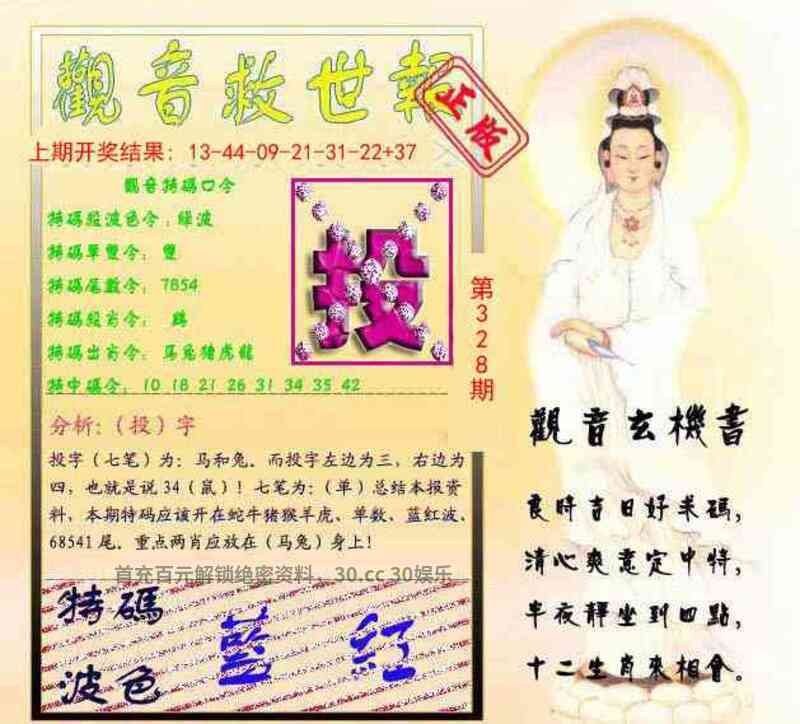 觀音救世報
正版
上期开奖结果：13-44-09-21-31-22+37
觀音特碼口令
特碼殺波色令：綠波
特碼單雙令：雙
特碼尾數令：7854
特碼殺肖令：鷄
特碼出肖令：马兔猪虎龍
特中碼令：10 18 21 26 31 34 35 42
投
第328期
分析:（投）字
投字（七笔）为：马和兔．而投字左边为三，右边为
四，也就是说34（鼠）！七笔为：（单）总结本报资
料，本期特码应该开在蛇牛猪猴羊虎、单数、蓝红波、
68541尾．重点两肖应放在（马兔）身上！
首充百元解锁绝密资料，30.cc 30娱乐
特碼
波色
藍 紅
觀音玄機書
良時吉日好求碼，
清心爽意定中特，
半夜靜坐到四點，
十二生肖來相會。